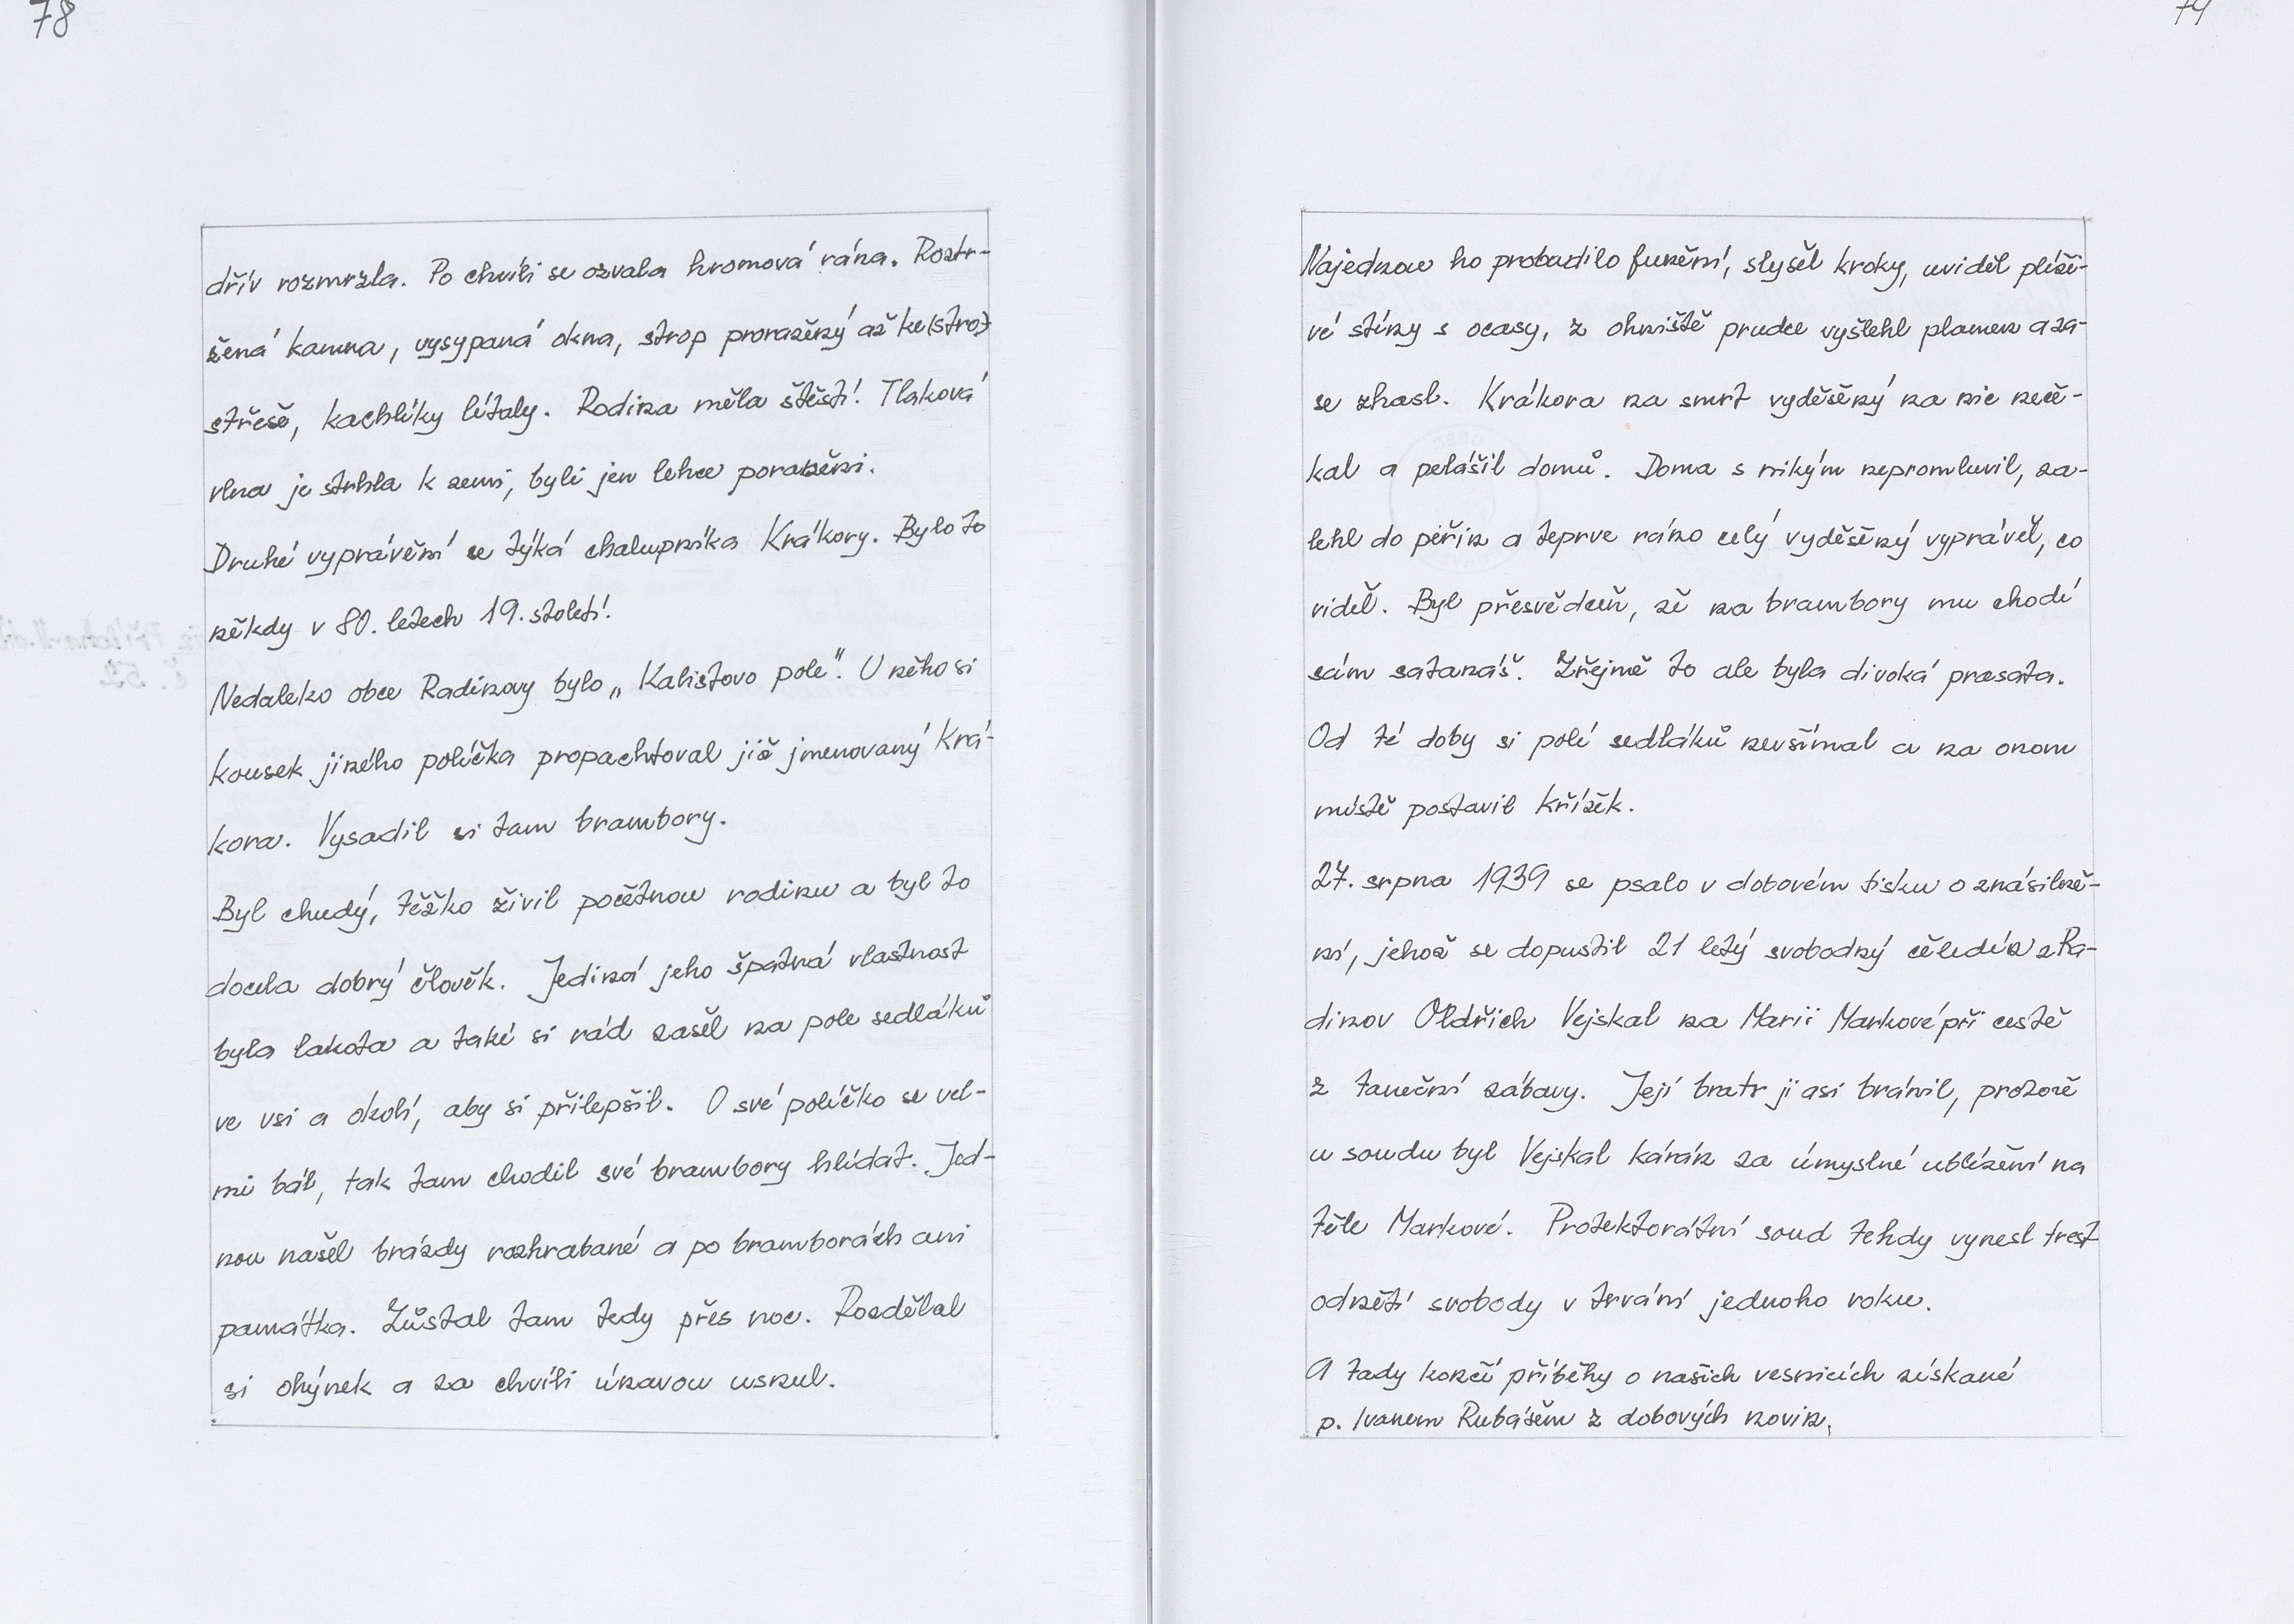 78
dřív rozmrzla. Po chvíli se ozvala hromová rána. Roztr-
žená kamna, vysypaná okna, strop proražený až ke (stro)
střeše, kachlíky lítaly. Rodina měla štěstí! Tlaková
vlna je strhla k zemi, byli jen lehce poraněni.
Druhé vyprávění se týká chalupníka Krákory. Bylo to
někdy v 80. letech 19. století.
Nedaleko obce Radinovy bylo „Kalistovo pole". U něho si
kousek jiného políčka propachtoval již jmenovaný Krá-
kora. Vysadil si tam brambory.
Byl chudý, těžko živil početnou rodinu a byl to
docela dobrý člověk. Jediná jeho špatná vlastnost
byla lakota a také si rád zašel na pole sedláků
ve vsi a okolí, aby si přilepšil. O své políčko se vel-
mi bál, tak tam chodil své brambory hlídat. Jed-
nou našel brázdy rozhrabané a po bramborách ani
památka. Zůstal tam tedy přes noc. Rozdělal
si ohýnek a za chvíli únavou usnul.
Najednou ho probudilo funění, slyšel kroky, uviděl plíži-
vé stíny s ocasy, z ohniště prudce vyšlehl plamen a za-
se zhasl. Krákora na smrt vyděšený na nic neče-
kal a pelášil domů. Doma s nikým nepromluvil, za-
lehl do peřin a teprve ráno celý vyděšený vyprávěl, co
viděl. Byl přesvědčen, že na brambory mu chodí
sám satanáš. Zřejmě to ale byla divoká prasata.
Od té doby si polí sedláků nevšímal a na onom
místě postavil křížek.
27. srpna 1939 se psalo v dobovém tisku o znásilně-
ní, jehož se dopustil 21 letý svobodný čeledín z Ra-
dinov Oldřich Vejskal na Marii Markové při cestě
z taneční zábavy. Její bratr ji asi bránil, protože
u soudu byl Vejskal kárán za úmyslné ublížení na
těle Markové. Protektorátní soud tehdy vynesl trest
odnětí svobody v trvání jednoho roku.
A tady končí příběhy o našich vesnicích získané
p. Ivanem Rubášem z dobových novin.